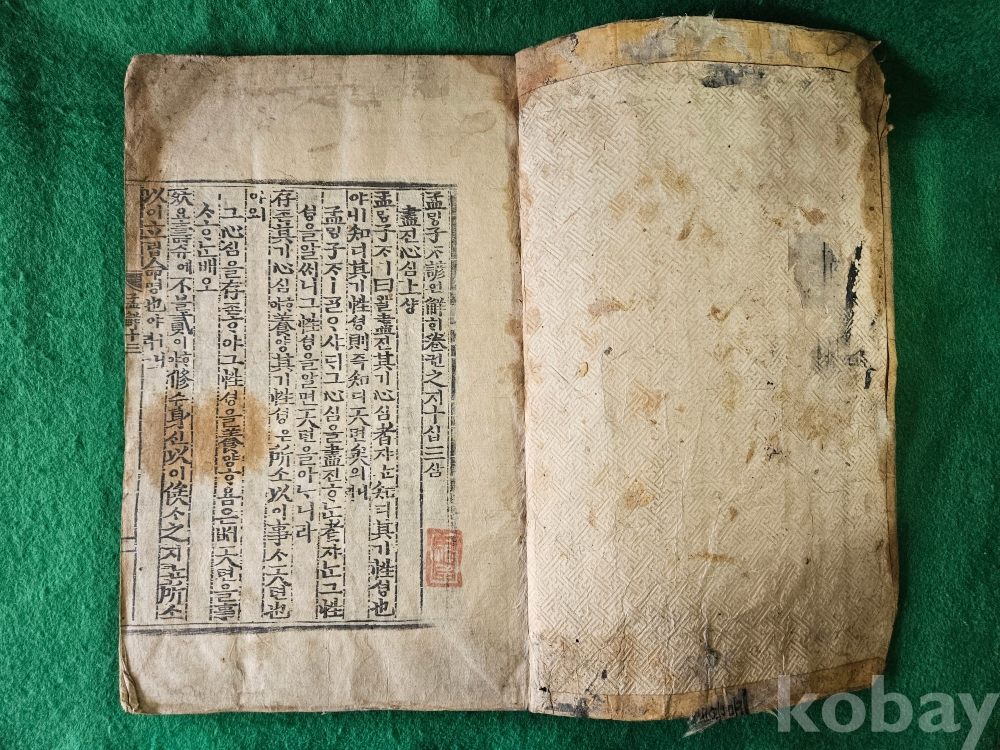 孟ᄆᆡᆼ子ᄌᆞ諺언解ᄒᆡ卷권之지十십三삼
盡진心심上샹
孟ᄆᆡᆼ子ᄌᆞㅣ曰왈盡진其기心심者쟈ᄂᆞᆫ知디其기性셩也
야ㅣ니知디其기性셩則즉知디天텬矣의니라
孟ᄆᆡᆼ子ᄌᆞㅣᄀᆞᆯᄋᆞ샤ᄃᆡ그心심을盡진ᄒᆞᄂᆞᆫ者쟈ᄂᆞᆫ그性
셩을알써니그性셩을알면天텬을아ᄂᆞ니라
存존其기心심ᄒᆞ야養양其기性셩은所소以이事ᄉᆞ天텬也
야ㅣ오
그心심을存존ᄒᆞ야그性셩을養양ᄒᆞ욤은ᄡᅥ天텬을事
ᄉᆞᄒᆞᄂᆞᆫ배오
殀요壽슈에不불貳이ᄒᆞ야修슈身신以이俟ᄉᆞ之지ᄂᆞᆫ所소
以이立립命명也야ㅣ니라
孟解十三
kobay